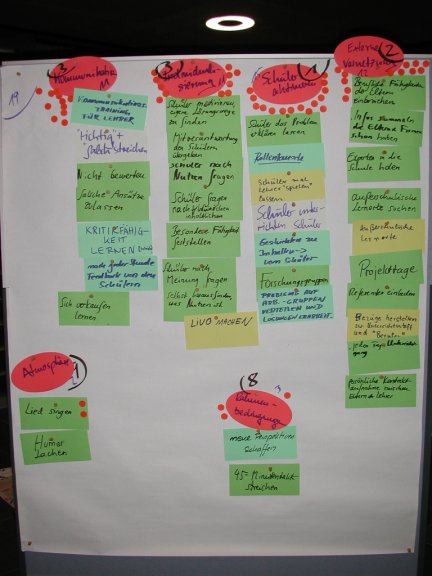 19
3
Kommunikation
11
Kommunikations-
TRAINING
FÜR LEHRER
"richtig" +
falsch streichen
Nicht bewerten
falsche Ansätze
zulassen
KRITIKFÄHIG-
KEIT
LERNEN
nach jeder Stunde
Feedback von den
Schülern
Sich verkaufen
lernen
3
Individuali-
sierung
11
Schüler motivieren,
eigene Lösungswege
zu finden
Mitverantwortung
den Schülern
übergeben
Schüler nach
Nutzen fragen
Schüler fragen
nach
Besondere Fähigkeit
feststellen
Schüler nach
Meinung fragen
Selbst herausfinden,
was Nutzen ist
LIVO MACHEN
1
Schüler
aktivieren
Schüler das Problem
erklären lassen
Rollentausch
Schüler mal
Lehrer "spielen"
lassen
Schüler unter-
richten Schüler
vom Schüler
Forschungsgruppen
PROBLEME AUF
ARB.-GRUPPEN
VERTEILEN UND
LÖSUNGEN ERARBEIT.
Externe
2
12
Fähigkeiten
der Eltern
einbeziehen
Infos sammeln
die Eltern Firmen
haben
Experten in die
Schule holen
außerschulische
Lernorte suchen
Außerschulische
Lernorte
Projekttage
Referenten einladen
Bezüge herstellen
zu Unterrichtsstoff
und "Beruf"
jeden Tag
Persönliche Kontakt-
aufnahme zwischen
Eltern & Lehrer
Atmosphäre
9
Lied singen
Humor
Lachen
8
3
Rahmen-
bedingungen
neue Perspektiven
schaffen
45-Minutentakt
streichen